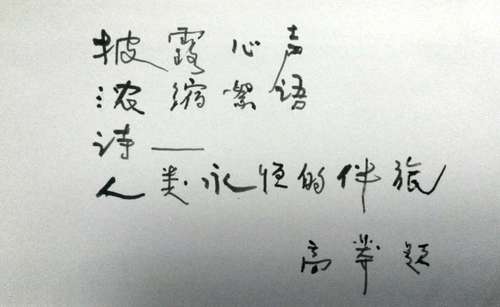 披露心声
浓缩絮语
诗——
人类永恒的伴旅
高莽题